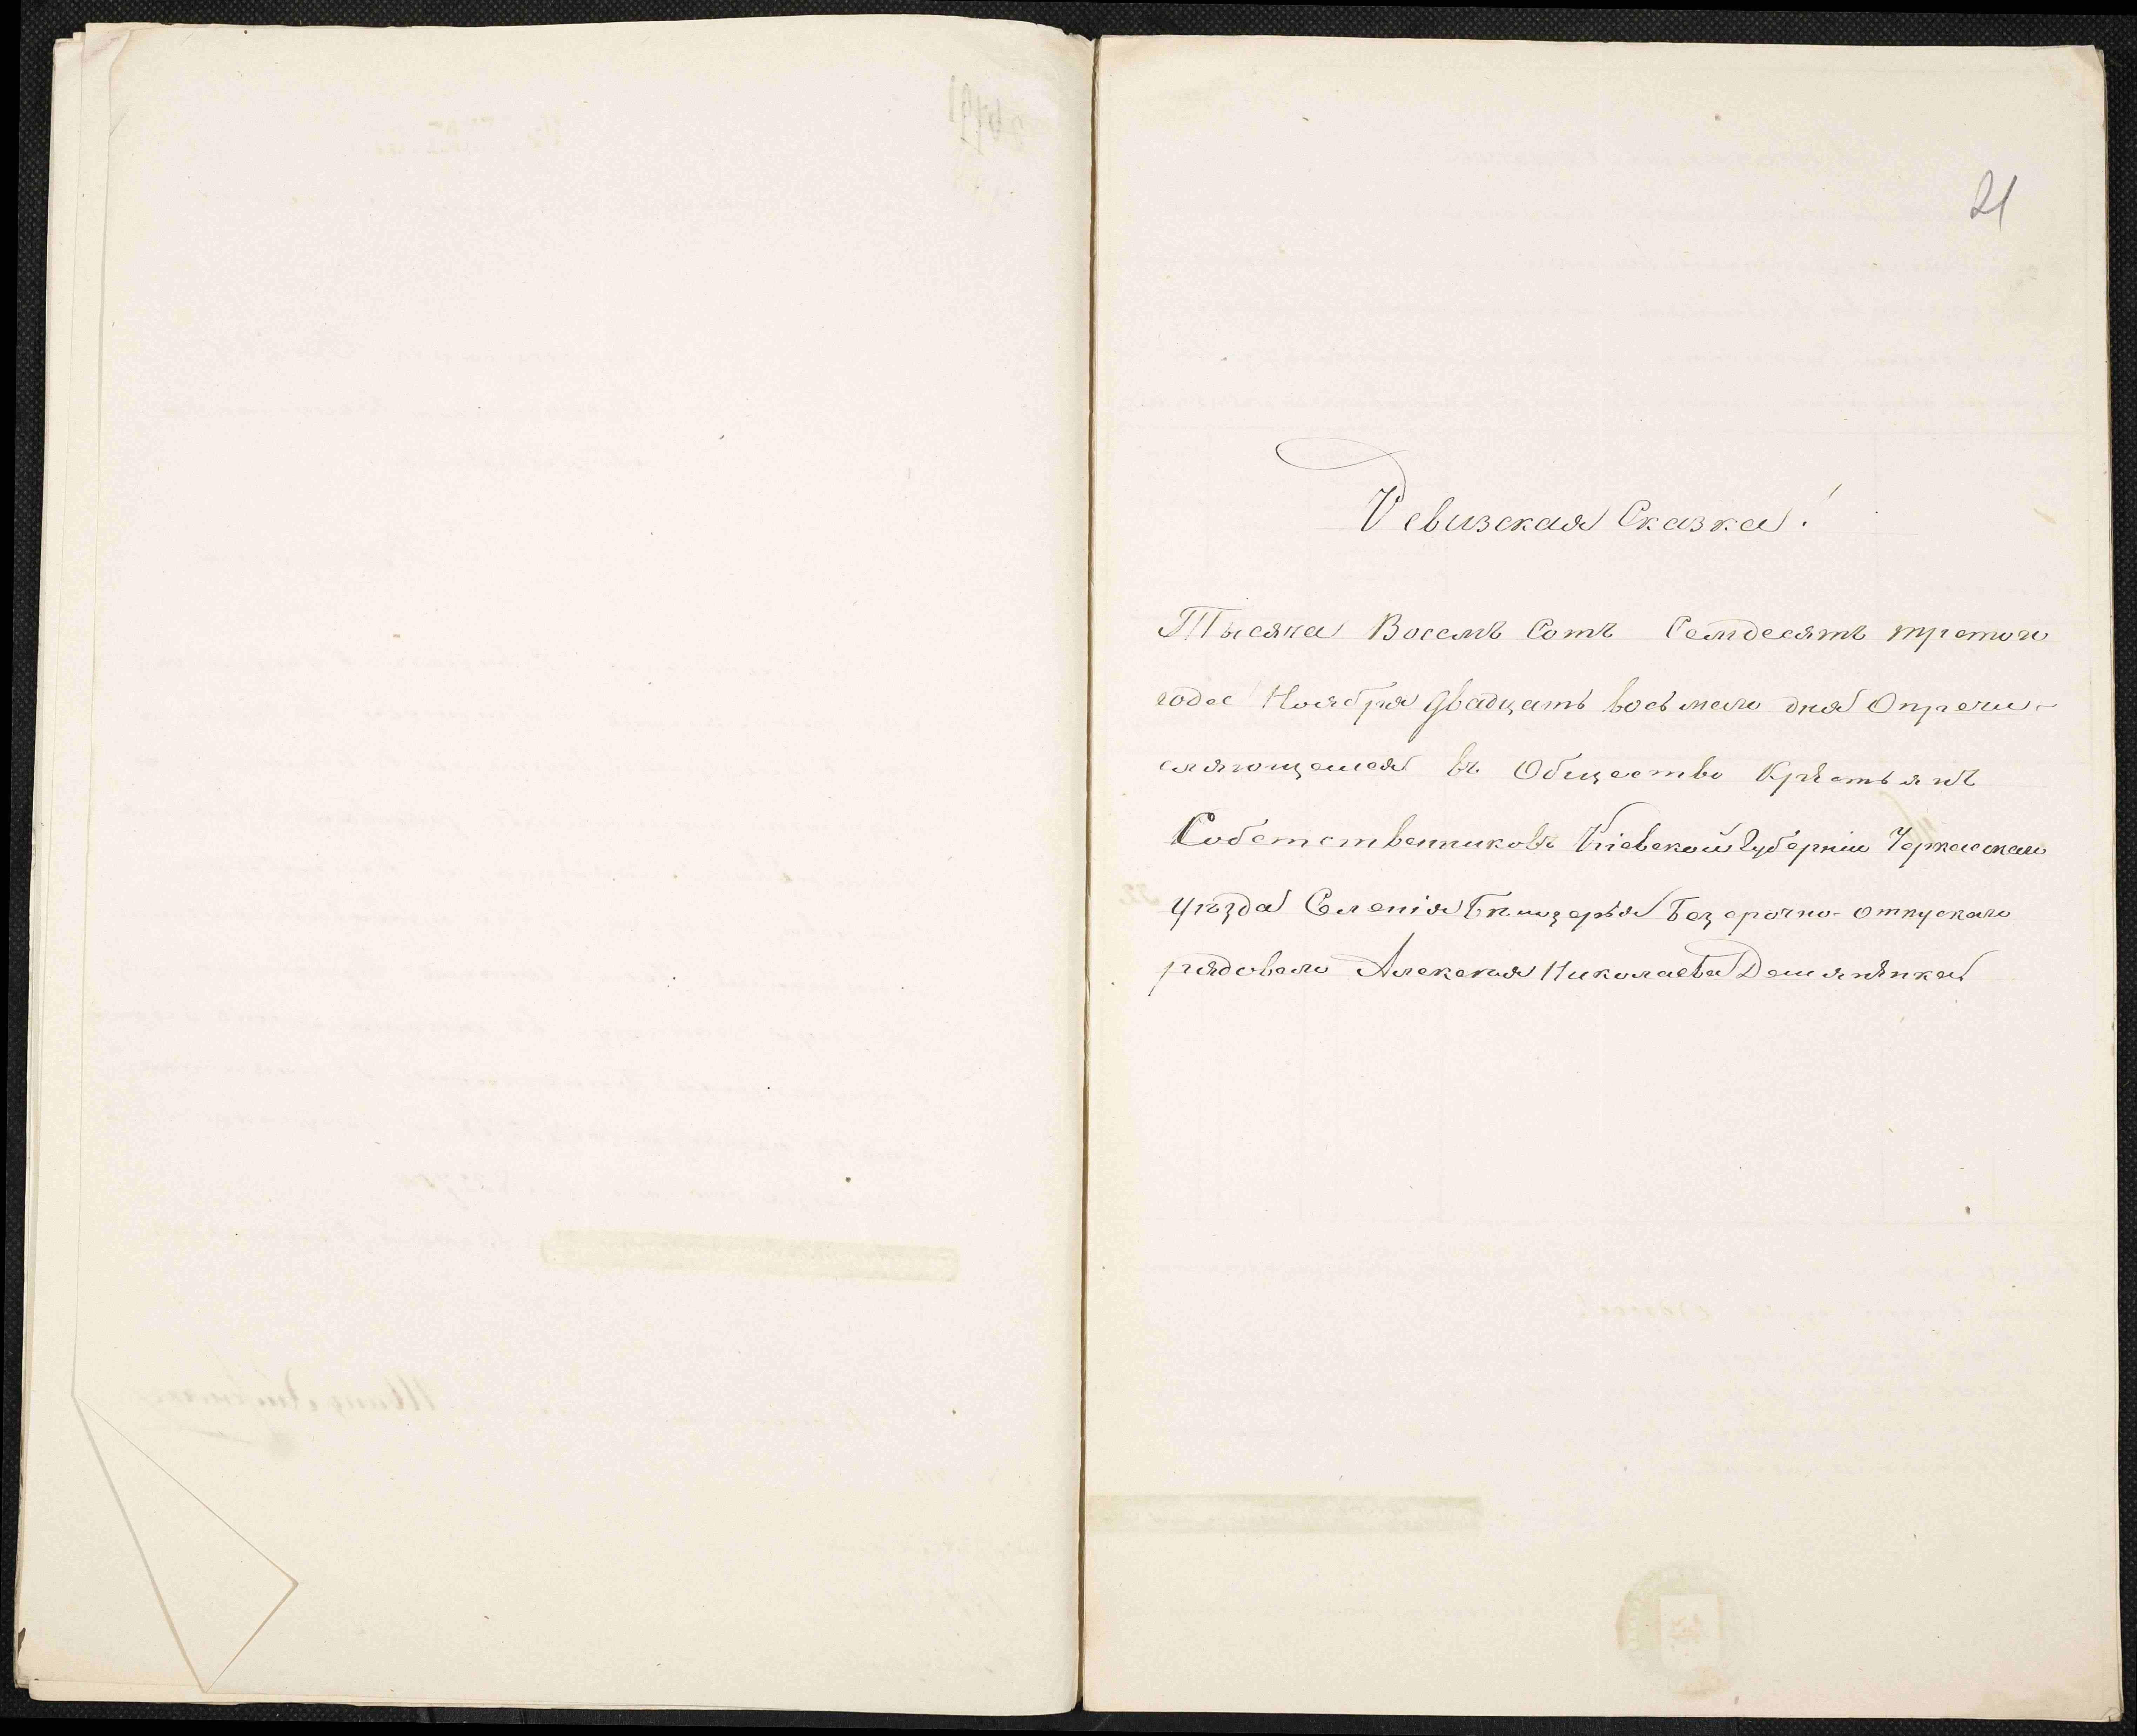 21
Ревизская Сказка!
Тысяча Восемь Сотъ Семдесятъ третого
года Ноября двадцать восьмаго дня О пречи-
сляющемся въ Общество Крѣстьянъ
Собстственниковъ Кіевской Губерніи Черкасскаго
уѣзда Селенія Безсрочно-отпускаго
рядоваго Алексея Николаева Демянѣнка